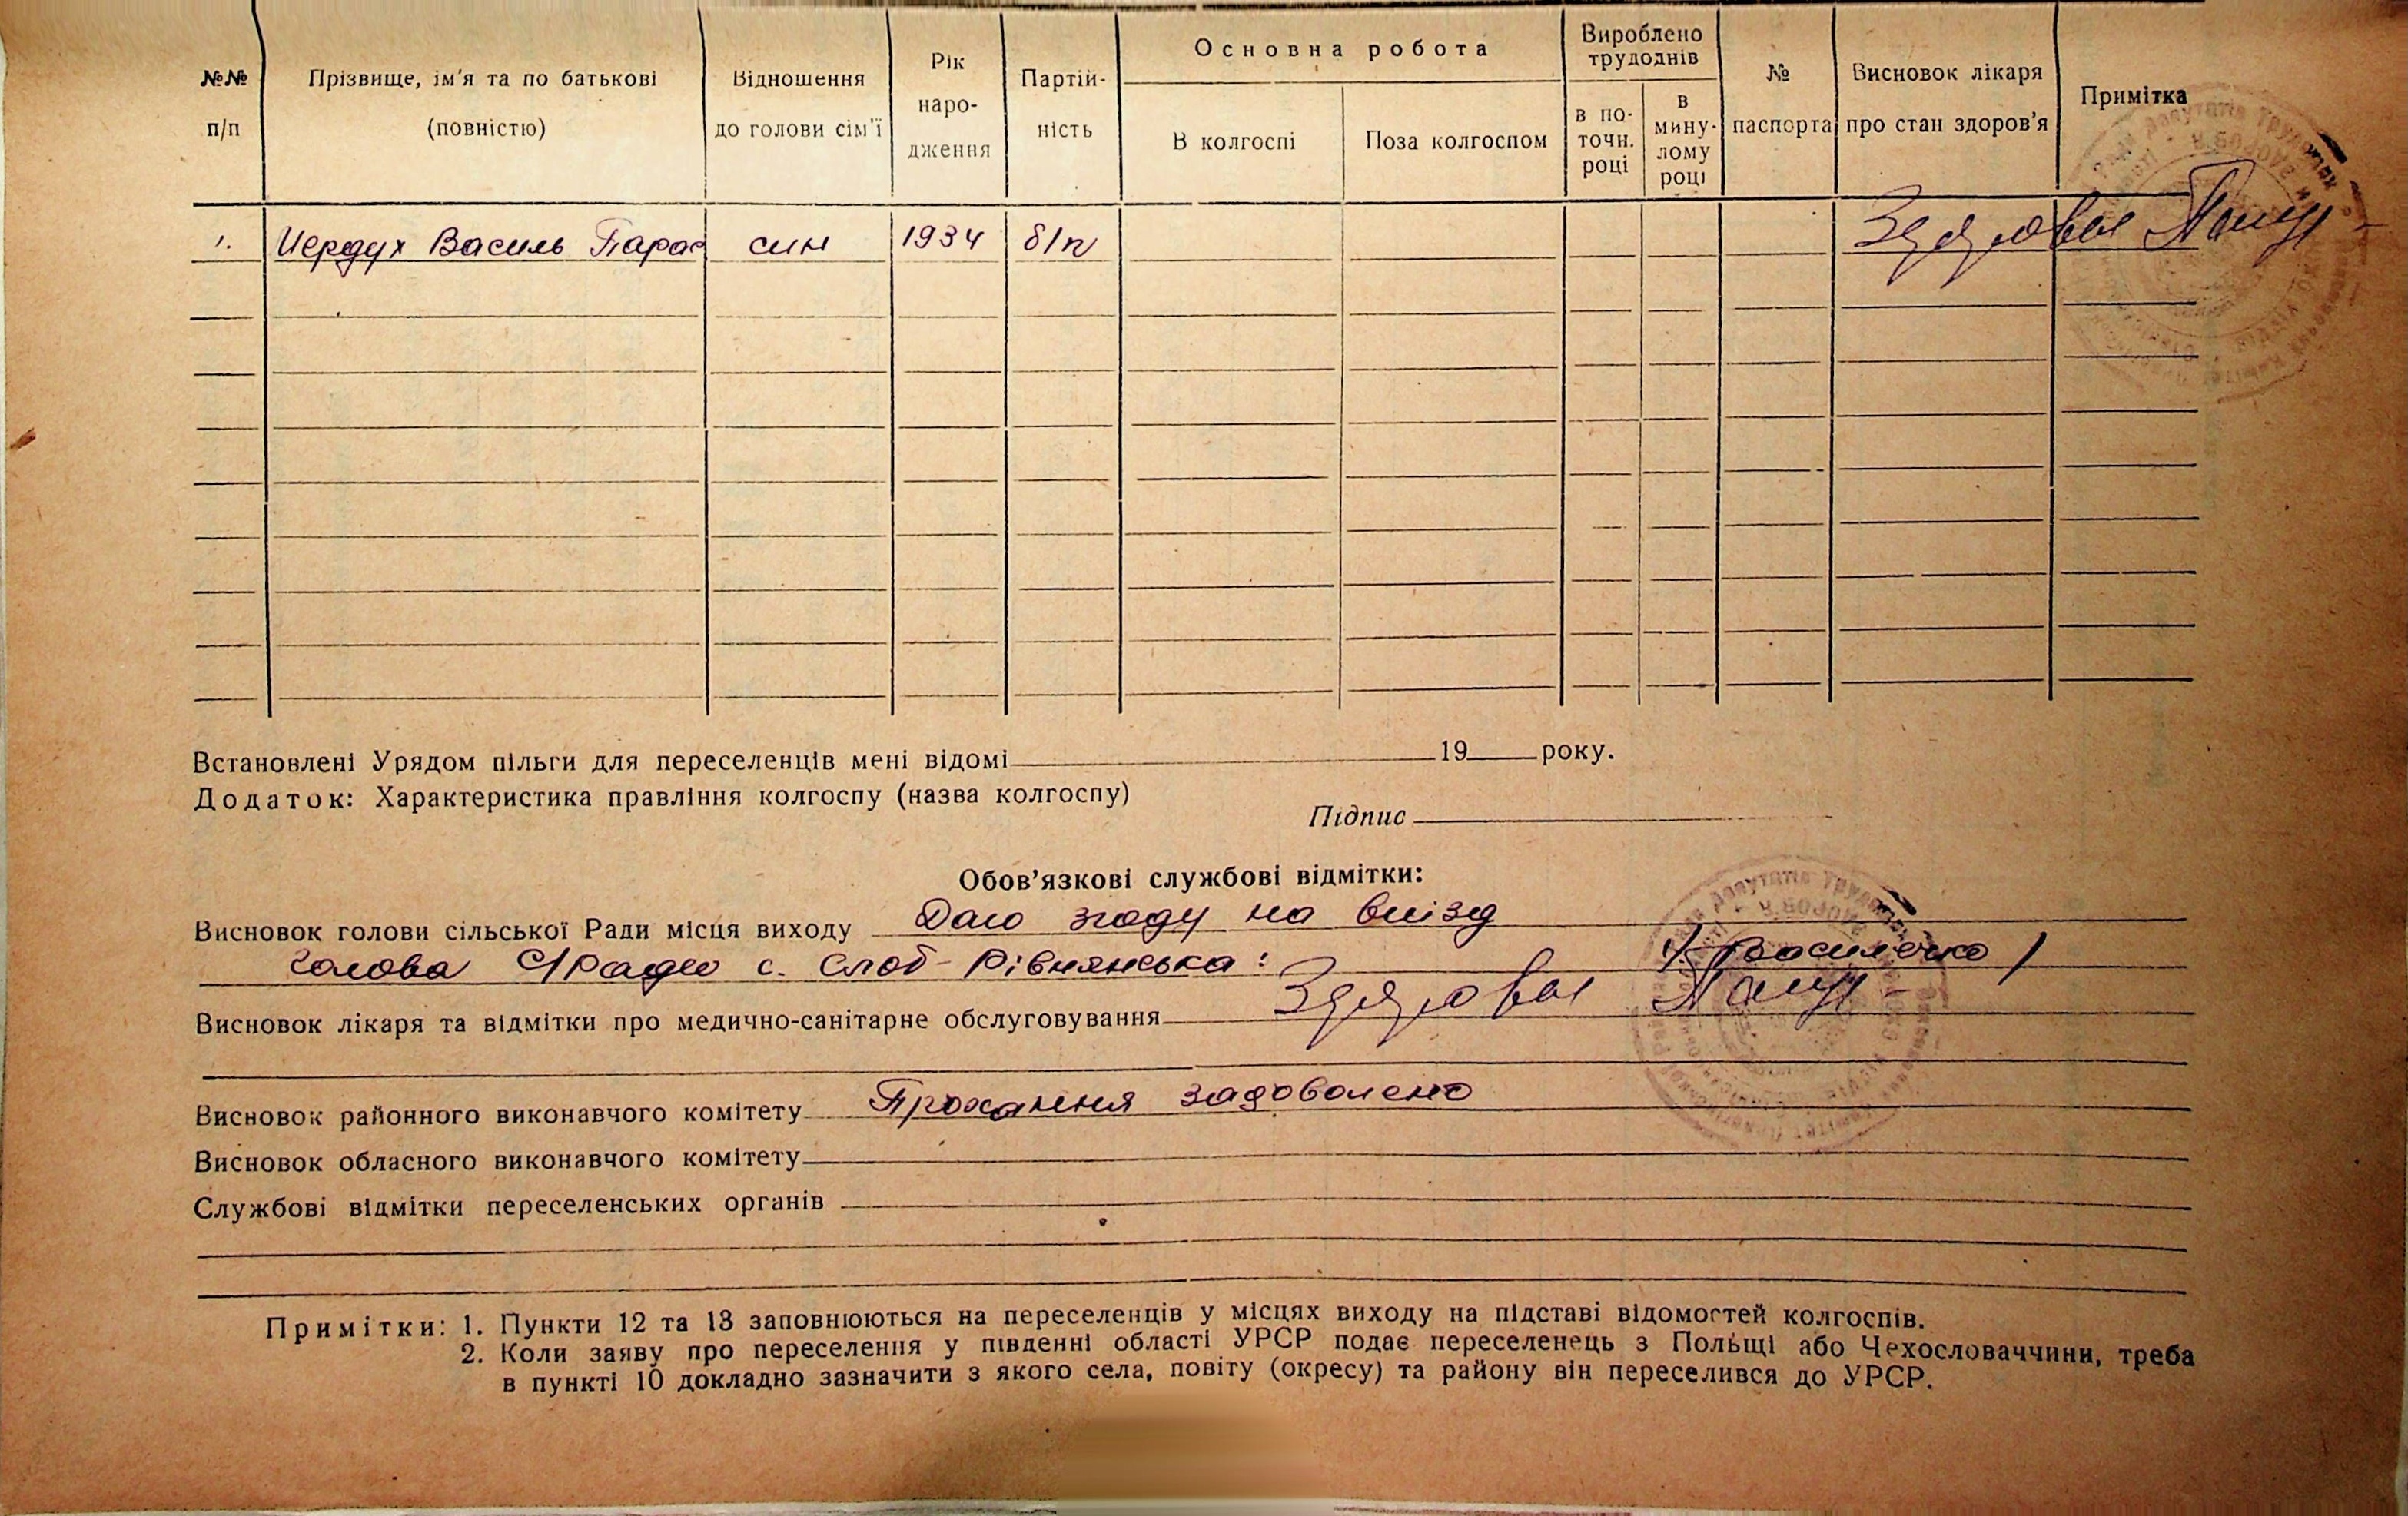 №№ п/п
Прізвище, ім'я та по батькові (повністю)
Відношення до голови сім'ї
Рік наро- дження
Партій- ність
Основна робота
В колгоспі
Поза колгоспом
Вироблено трудоднів
в по- точн. році
в мину- лому році
№ паспорта
Висновок лікаря про стан здоров'я
Примітка
1. Василь Парас син 1934 б/п
Встановлені Урядом пільги для переселенців мені відомі 19 року.
Додаток: Характеристика правління колгоспу (назва колгоспу)
Підпис
Обов'язкові службові відмітки:
Висновок голови сільської Ради місця виходу Даю згоду на виїзд
Голова с/Ради с. Слоб-Рівнянська: / Василечко /
Висновок лікаря та відмітки про медично-санітарне обслуговування
Висновок районного виконавчого комітету Прохання задоволено
Висновок обласного виконавчого комітету
Службові відмітки переселенських органів
Примітки: 1. Пункти 12 та 13 заповнюються на переселенців у місцях виходу на підставі відомостей колгоспів.
2. Коли заяву про переселення у південні області УРСР подає переселенець з Польщі або Чехословаччини, треба
в пункті 10 докладно зазначити з якого села, повіту (окресу) та району він переселився до УРСР.